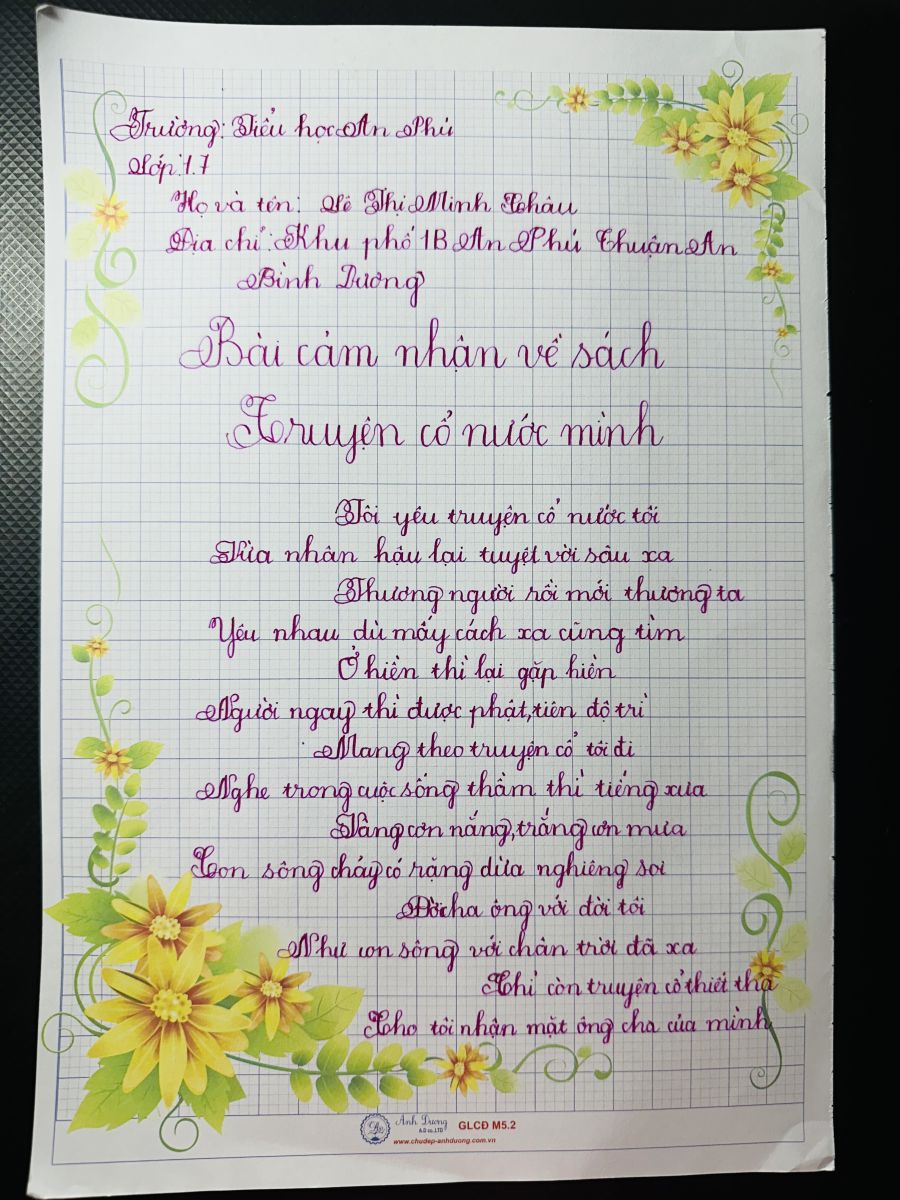 Trường: Tiểu học An Phú
Lớp: 1.7
Họ và tên: Lê Thị Minh Châu
Địa chỉ: Khu phố 1B An Phú Thuận An
Bình Dương
Bài cảm nhận về sách
Truyện cổ nước mình
Tôi yêu truyện cổ nước tôi
Vừa nhân hậu lại tuyệt vời sâu xa
Thương người rồi mới thương ta
Yêu nhau dù mấy cách xa cũng tìm
Ở hiền thì lại gặp hiền
Người ngay thì được phật, tiên độ trì
Mang theo truyện cổ tôi đi
Nghe trong cuộc sống thầm thì tiếng xưa
Vàng cơn nắng, trắng cơn mưa
Con sông chảy có rặng dừa nghiêng soi
Đời cha ông với đời tôi
Như con sông với chân trời đã xa
Chỉ còn truyện cổ thiết tha
Cho tôi nhận mặt ông cha của mình
Ánh Dương
A.D co.,LTD
GLCĐ M5.2
www.chudep-anhduong.com.vn